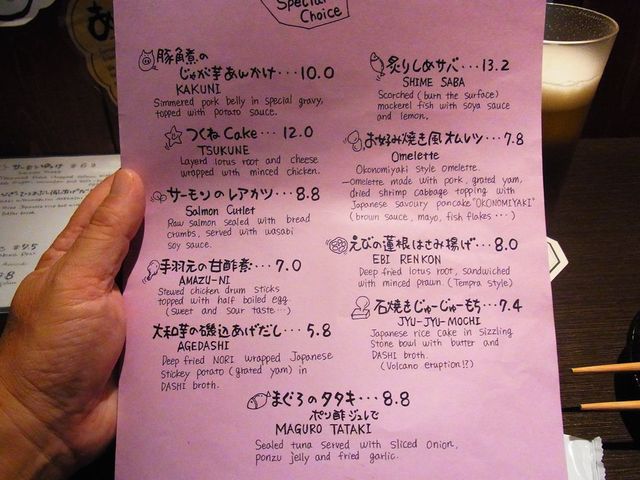 Special
Choice
豚角煮の
じゃが芋あんかけ・・・10.0
KAKUNI
Simmered pork belly in special gravy,
topped with potato sauce.
つくねCake・・・12.0
TSUKUNE
Layerd lotus root and cheese
wrapped with minced chicken.
サーモンのレアカツ・・・8.8
Salmon Cutlet
Raw salmon sealed with bread
crumbs, served with wasabi
soy sauce.
手羽元の甘酢煮・・・7.0
AMAZU-NI
Stewed chicken drum sticks
topped with half boiled egg.
(sweet and sour taste...)
大和芋の磯辺あげだし・・・5.8
AGEDASHI
Deep fried NORI wrapped Japanese
stickey potato (grated yam) in
DASHI broth.
炙りしめサバ・・・13.2
SHIME SABA
Scorched (burn the surface)
mackerel fish with soya sauce
and lemon.
お好み焼き風オムレツ・・・7.8
Omelette
Okonomiyaki style omelette.
-omelette made with pork, grated yam,
dried shrimp cabbage topping with
Japanese savoury pancake "OKONOMIYAKI"
(brown sauce, mayo, fish flakes...)
えびの蓮根はさみ揚げ・・・8.0
EBI RENKON
Deep fried lotus root, sandwiched
with minced prawn. (Tempra style)
石焼きじゅーじゅーもち・・・7.4
JYU-JYU-MOCHI
Japanese rice cake in sizzling
Stone bowl with butter and
DASHI broth.
(Volcano eruption!?)
まぐろのタタキ・・・8.8
ポン酢ジュレで
MAGURO TATAKI
Sealed tuna served with sliced onion,
ponzu jelly and fried garlic.